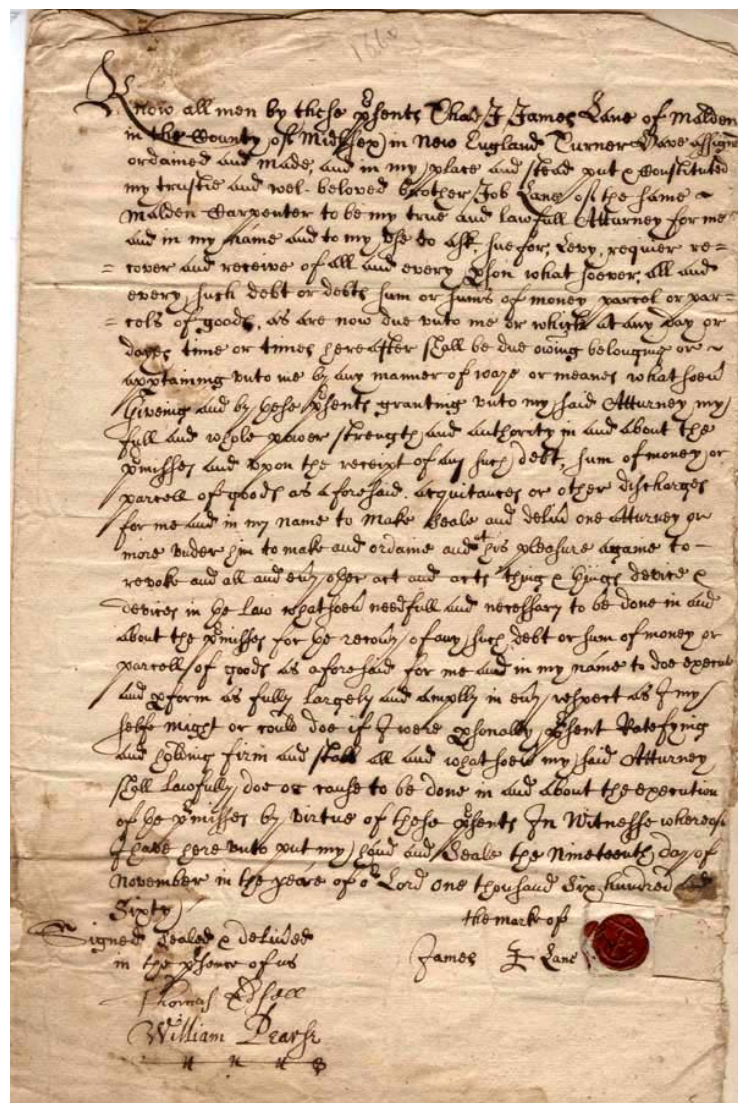 1660
Know all men by these p̱sents That I James Lane of Malden
in the County of Midlsex) in New England Turner Have assigned
ordained and made, and in my place and stead put & Constituted
my trustie and wel-beloved brother Job Lane of the same ~
Malden Carpenter to be my true and lawfull Atturney for me
and in my name and to my Vse to ask, sue for, Levy, requier re=
= cover and receive of all and every p̱son what soever, all and
every such debt or debts sum or sums of money parcel or par=
= cels of goods, as are now due vnto me or which at any day or
dayes time or times hereafter shall be due owing belonging or ~
app̱taining vnto me by any manner of waye or meanes what soeu
Giveing and by yese p̱sents granting vnto my said Atturney my
full and whole power strength and authority in and about the
p̱misses and vpon the receipt of any such debt, sum of money or
parcell of goods as aforesaid, acquitances or other discharges
for me and in my name to Make Seale and deliu one atturney or
more vnder him to make and ordaine and his pleasure againe to -
revoke and all and eu̱y oyer act and acts thing & things device &
devices in ye Law whatsoeu needfull and necessary to be done in and
about the p̱misses for ye recou̱y of any such debt or sum of money or
parcell of goods as aforesaid for me and in my name to doe execute
and p̱form as fully largely and amply in eu̱y respect as I my
selfe might or could doe if I were p̱sonally p̱sent Ratefying
and holding firm and all and whatsoeu my said Atturney
shall Lawfully doe or cause to be done in and about the execution
of ye p̱misses by virtue of these p̱sents In Witnesse whereof
I have here vnto put my hand and Seale the Nineteenth day of
November in the yeare of or Lord one thousand Six hundred and
Sixty
Signed Sealed & deliu̱ed
in the p̱sence of us
the mark of
James Lane
Thomas
William Pearse